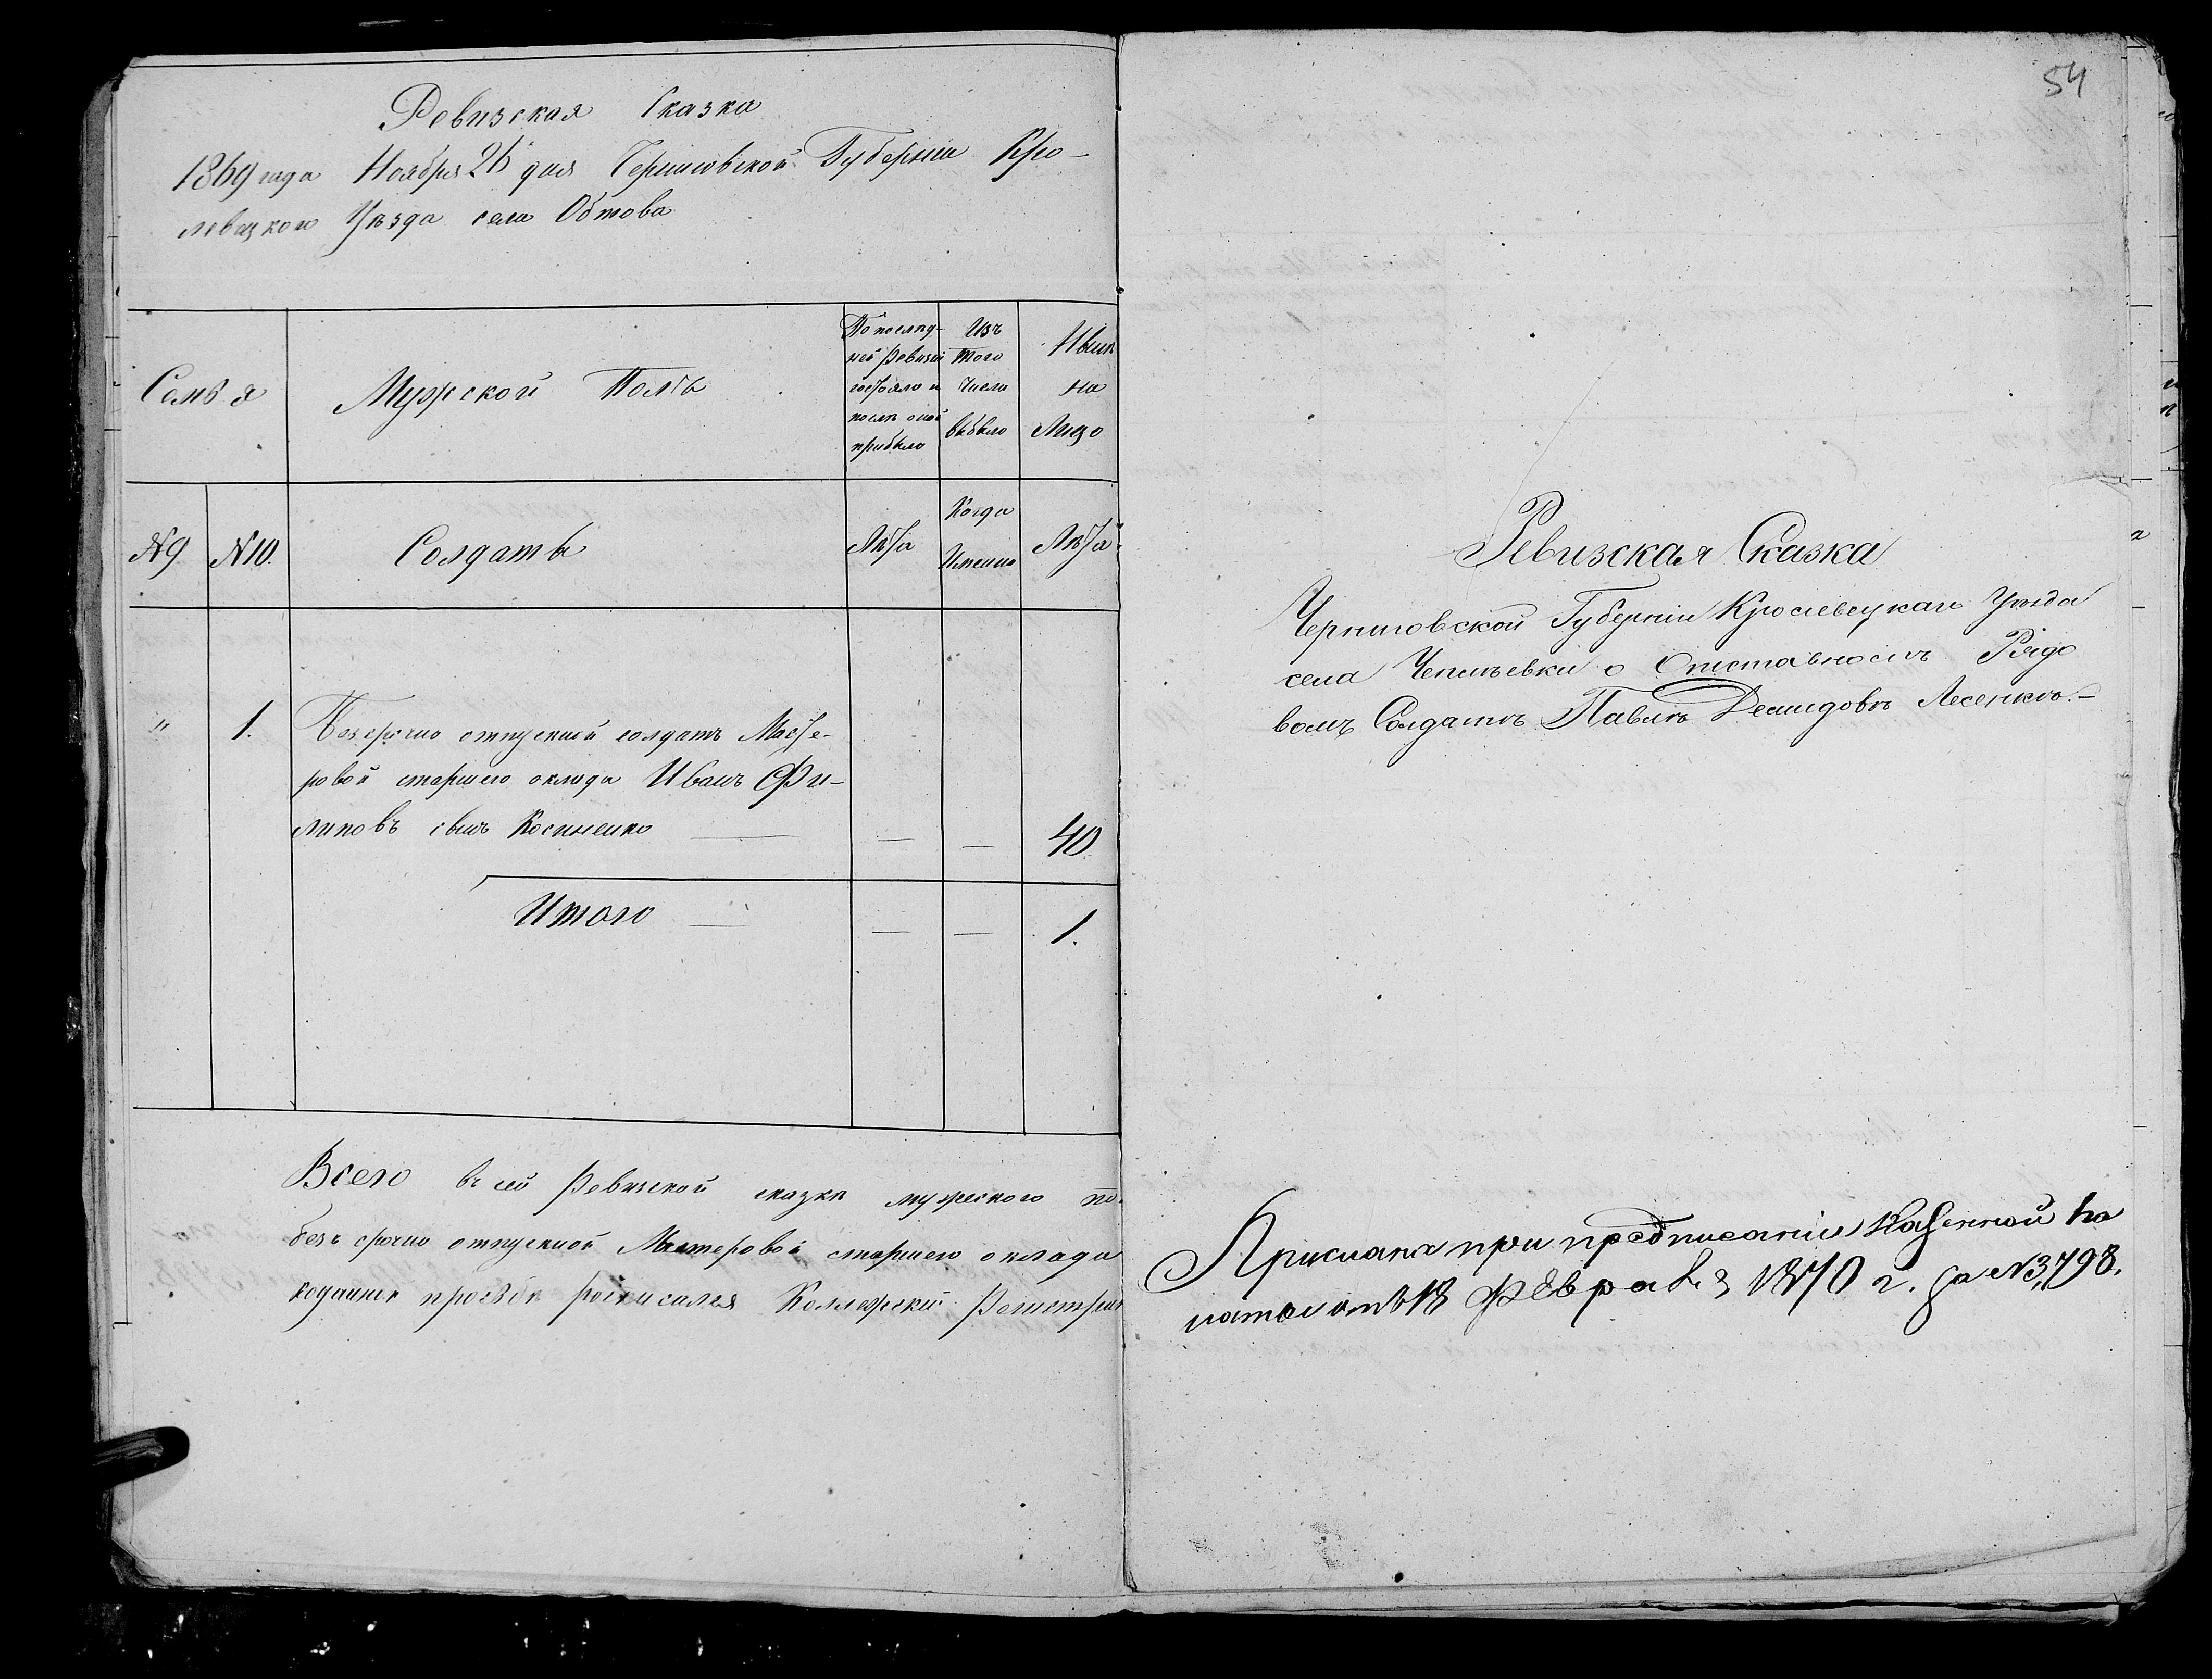 Ревизская Сказка
1869 года Ноября 26 дня Черниговской Губерніи Кро-
левецкого Уѣзда села Обтова
Семья
Мужской Полъ
По послѣд-
ней Ревизіи
состояло и
послѣ оной
прибыло
Изъ
того
числа
выбыло
Нынѣ
на
Лицо
№9. №10.
Солдаты
Лѣта
Когда
Именно
Лѣта
" 1.
Безсрочно отпускной солдатъ Масте-
ровой старшего оклада Иванъ Фи-
липовъ сынъ Косиненко — — — 40
Итого — — — 1.
Всего въ сей Ревизской сказки мужеского по-
безъ срочно отпускной Мастеровой старшего оклада
росписался Коллежский Регистра
54
Ревизская Сказка
Черниговской Губерніи Кролевецкаго Уѣзда
села Чепліевки о Отставномъ Рядо
вомъ Солдатѣ Павлѣ Демидовѣ Лесенко.-
Прислана при предписаніи Казенной Па
латы отъ 18 Февраля 1870 г. за №3,798.